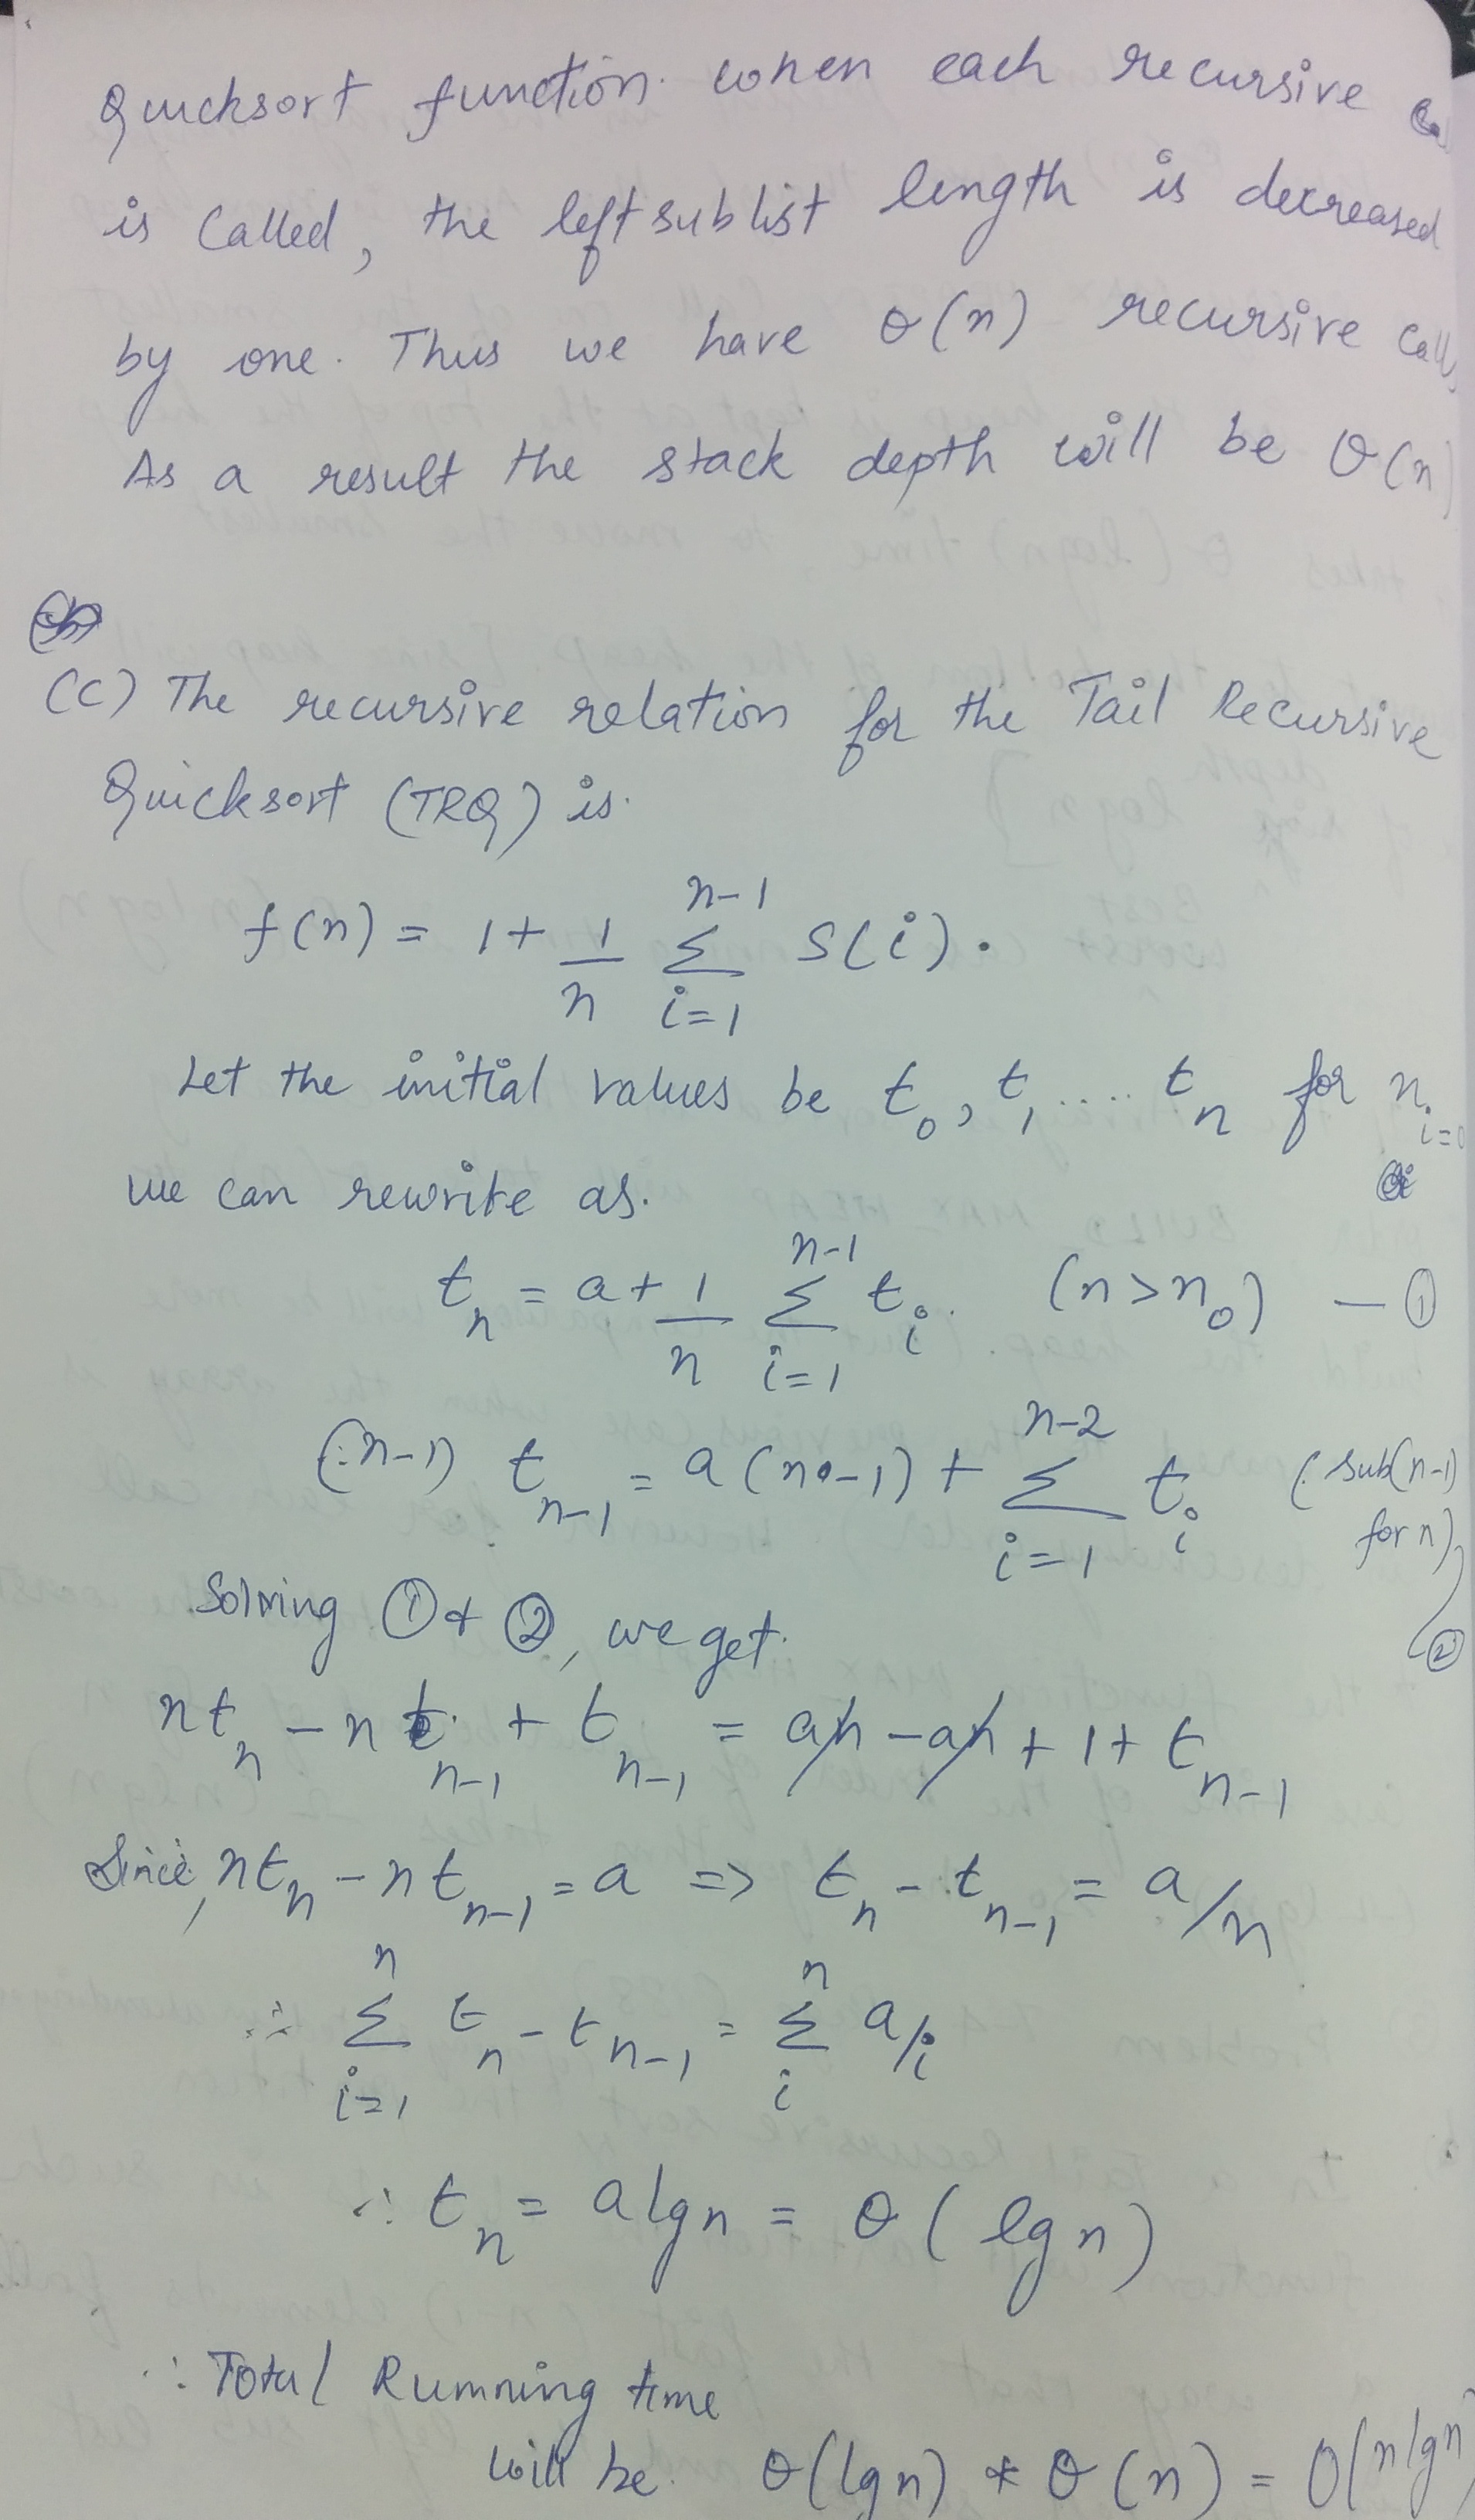 Quicksort function. when each recursive
is called, the left sublist length is decreased
by one. Thus we have θ(n) recursive call
As a result the stack depth will be θ(n)
(C) The recursive relation for the Tail Recursive
Quicksort (TRQ) is.
f(n) = 1 + 1/n Σ_{i=1}^{n-1} S(i).
Let the initial values be t_0, t_1 .... t_n for n_{i=0}
we can rewrite as.
t_n = a + 1/n Σ_{i=1}^{n-1} t_i. (n > n_0) — ①
(n-1) t_{n-1} = a(n-1) + Σ_{i=1}^{n-2} t_i (sub(n-1)
for n)
②
Solving ① & ②, we get.
nt_n - nt_{n-1} + t_{n-1} = an - an + 1 + t_{n-1}
Since, nt_n - nt_{n-1} = a => t_n - t_{n-1} = a/n
∴ Σ_{i=1}^{n} t_n - t_{n-1} = Σ_{i}^{n} a/i
∴ t_n = a lg n = θ(lg n)
∴ Total Running time
will be. θ(lg n) * θ(n) = O(n lg n)